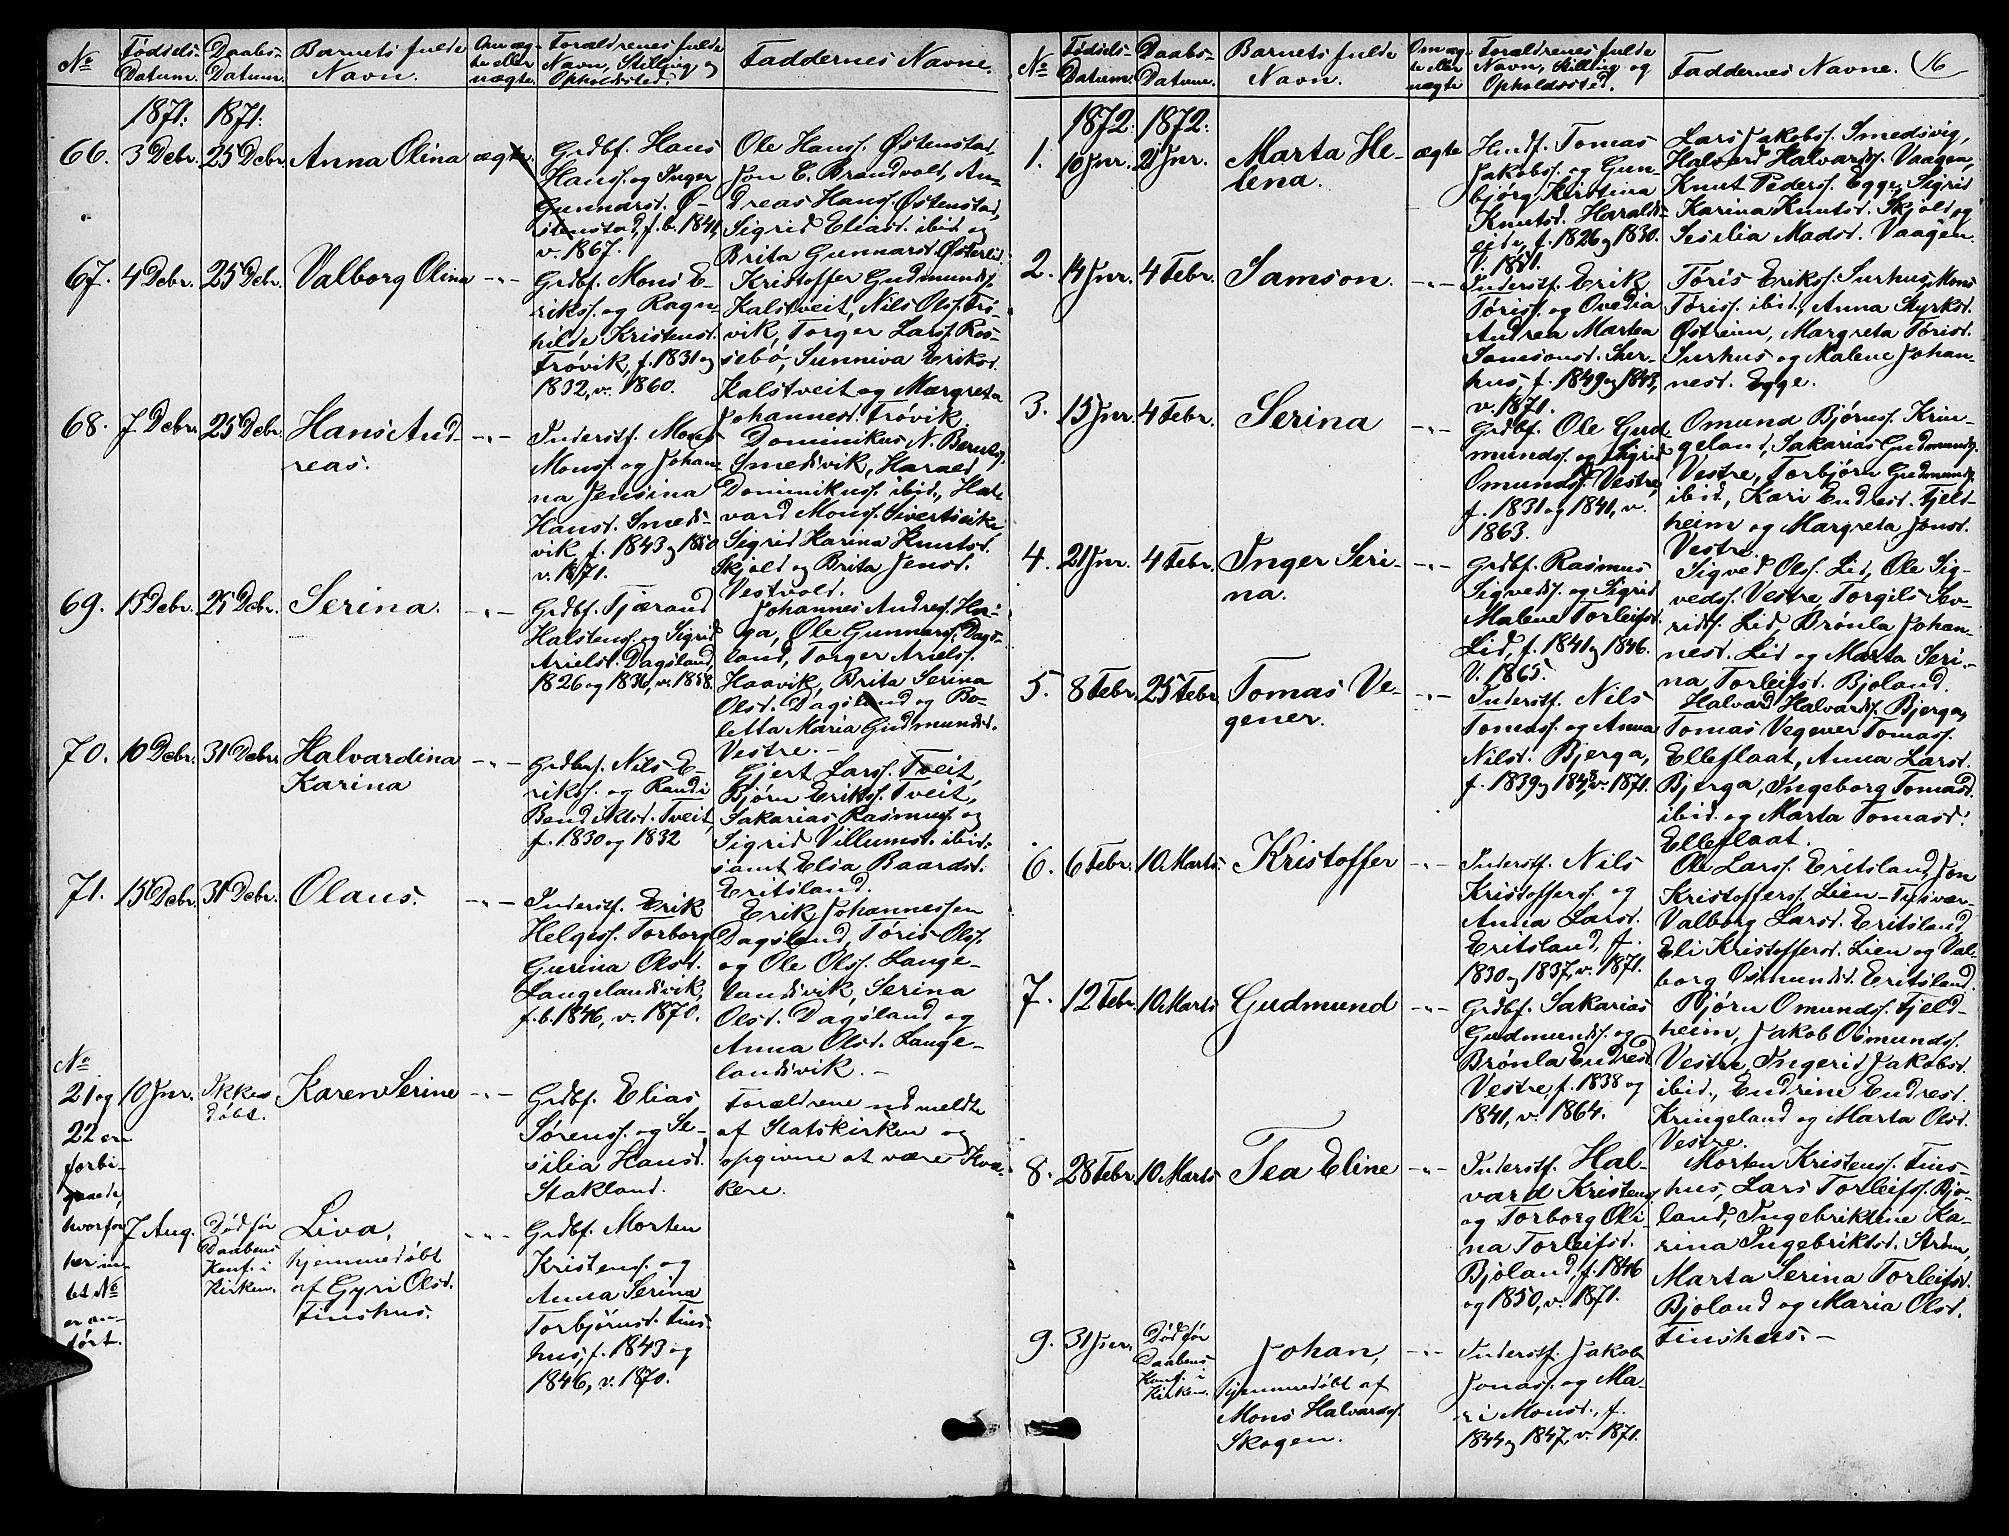 No
Fødsels-
Datum.
Daabs-
Datum.
Barnets fulde
Navn.
Om æg-
te eller
uægte.
Forældrenes fulde
Navn, Stilling og
Opholdssted.
Faddernes Navne.
1871:
1871:
66.
3 Debr.
25 Debr.
Anna Olina
ægte.
Grdbf. Hans
Hanss. og Inger
Gunnarsd. Ø-
stenstad, f. b. 1841,
v. 1867.
Ole Hanss. Østenstad,
Jon E. Brandvold, An-
dreas Hanss. Østenstad,
Sigrid Eliasd. ibid. og
Brita Gunnarsd. Østerlid.
67.
4 Debr.
25 Debr.
Valborg Olina
-"-
Grdbf. Mons E-
rikss. og Ragn-
hilde Kristensd.
Frøvik, f. 1831 og
1832, v. 1860.
Kristoffer Gudmunds.
Kalstveit, Nils Olss. Frø-
vik, Torger Larss. Ros-
sebø, Sunniva Eriksd.
Kalstveit og Margreta
Johannesd. Frøvik.
68.
7 Debr.
25 Debr.
Hans And-
reas.
-"-
Inderstf. Mons
Monss. og Johan-
na Jensina
Hansd. Smeds-
vik, f. 1843 og 1850
v. 1871.
Dominikus N.
Smedsvik, Harald
Dominikuss. ibid., Hal-
vard Monss. Sivertsvik,
Sigrid Karina Knutsd.
Skjold og Brita Jensd.
Vestvold.
69.
15 Debr.
25 Debr.
Serina.
-"-
Grdbf. Tjærand
Halstenss. og Sigrid
Arielsd. Dagsland,
1826 og 1836, v. 1858.
Johannes Andress. Hei-
ga, Ole Gunnarss. Dags-
land, Torger Arielss.
Haavik, Brita Serina
Olsd. Dagsland og Bo-
letta Maria Gudmundsd.
Vestre.-
70.
10 Debr.
31 Debr.
Halvardina
Karina
-"-
Grdbrf. Nils E-
rikss. og Randi
Bendiktsd. Tveit,
f. 1830 og 1832
Gjert Larss. Tveit,
Bjørn Erikss. Tveit,
Sakarias Rasmuss. og
Sigrid Villumsd. ibid.
samt Elsa Baardsd.
Eritsland.
71.
15 Debr.
31 Debr.
Olaus.
-"-
Inderstf. Erik
Helgess. Torborg
Gurina Olsd.
Langelandsvik,
f. b. 1846, v. 1870.
Erik Johannessen
Dagsland, Tøris Olss.
og Ole Olss. Lange-
landsvik, Serina
Olsd. Dagsland og
Anna Olsd. Lange-
landsvik.-
No
21 og
22 er
forbi-
gaaede,
hvorfor
her in-
tet No
er an-
ført.
10 Jnr.
Ikke
døbt.
Karen Serine
-"-
Grdbf. Elias
Sørenss. og Se-
silia Hansd.
Stakland.
Forældrene udmeldte
af Statskirken og
opgivne at være Kvæ-
kere.
7 Aug.
Død før
Daabens
Konf. i
Kirken.
Liva,
hjemmedøbt
af Gyri Olsd.
Finshus.
-"-
Grdbf. Morten
Kristenss. og
Anna Serina
Torbjørnsd. Fins-
hus, f. 1843 og
1846, v. 1870.
No
Fødsels-
Datum.
Daabs-
Datum.
Barnets fulde
Navn.
Om æg-
te eller
uægte
Forældrenes fulde
Navn, Stilling og
Opholdssted.
Faddernes Navne.
16
1872:
1872:
1.
10 Jnr.
21 Jnr.
Marta He-
lena.
ægte
Husf. Tomas
Jakobss. og Gun-
bjørg Kerstina
Knutsd. Haralds-
eide, f. 1826 og 1830.
V. 1851.
Lars Jakobss. Smedsvig,
Halvard Halvardss. Vaagen,
Knut Pederss. Egge, Sigrid
Karina Knutsd. Skjold og
Sesilia Madsd. Vaagen.
2.
14 Jnr.
4 Febr.
Samson.
-"-
Inderstf. Erik
Tøriss. og Ovedia
Andrea Martea
Samsonsd. Sur-
hus, f. 1849 og 1843,
v. 1871.
Tøris Erikss. Surhus, Mons
Tøriss. ibid., Anna Styrksd.
Østreim, Margreta Tørisd.
Surhus og Malene Johan-
nesd. Egge.
3.
15 Jnr.
4 Febr.
Serina
-"-
Grdbf. Ole Gud-
mundss. og Sigrid
Omundsd. Vestre,
f. 1831 og 1841, v.
1863.
Omund Bjørnss. Krin-
geland, Sakarias Gudmundss.
Vestre, Torbjørn Gudmundss.
ibid., Kari Endresd. Fjeld-
heim og Margreta Jonsd.
Vestre.
4.
21 Jnr.
4 Febr.
Inger Seri-
na.
-"-
Grdbf. Rasmus
Sigvedss. og Sigrid
Malene Torleifsd.
Lid, f. 1841 og 1846.
V. 1865.
Sigved Olss. Lid, Ole Sig-
vedss. Vestre, Torgils Sev-
ridss. Lid, Brønla Johan-
nesd. Lid og Marta Seri-
na Torleifsd. Bjoland.
5.
8 Febr.
25 Febr
Tomas Ve-
gener.
-"-
Inderstf. Nils
Tomass. og Anna
Nilsd. Bjerga,
f. 1839 og 1843, v. 1871.
Halvard Halvardss. Bjerga,
Tomas Vegener Tomass.
Elleflaat, Anna Larsd.
Bjerga, Ingeborg Tomasd.
ibid. og Marta Tomasd.
Elleflaat.
6.
6 Febr.
10. Marts.
Kristoffer
-"-
Inderstf. Nils
Kristofferss. og
Anna Larsd.
Eritsland, f.
1830 og 1837, v. 1871.
Ole Larss. Eritsland, Jon
Kristofferss. Lien - Tysvær-
Valborg Larsd. Eritsland,
Eli Kristoffersd. Lien og Val-
borg Osmundsd. Eritsland.
7.
12 Febr.
10. Marts
Gudmund
-"-
Grdbf. Sakarias
Gudmundss. og
Brønla Endresd.
Vestre, f. 1838 og
1841, v. 1864.
Bjørn Omundss. Fjeld-
heim, Jakob Osmundss.
Vestre, Ingerid Jakobsd.
ibid., Endrine Endresd.
Kringeland og Marta Olsd.
Vestre.
8.
28 Febr.
10. Marts
Tea Eline
-"-
Inderstf. Hal-
vard Kristenss.
og Torborg Oli-
na Torleifsd.
Bjoland, f. 1846
og 1850, v. 1871.
Morten Kristenss. Fins-
hus, Lars Torleifss. Bjo-
land, Ingebriktine Ka-
rina Ingebriktsd. Strøm,
Marta Serina Torleifsd.
Bjoland og Maria Olsd.
Finshus.-
9.
31 Jnr.
Død før
Daabens
Konf. i
Kirken.
Johan,
hjemmedøbt af
Mons Halvardss.
Skogen.
-"-
Inderstf. Jakob
Jonass. og Ma-
ri Monsd., f.
1844 og 1847, v. 1871.